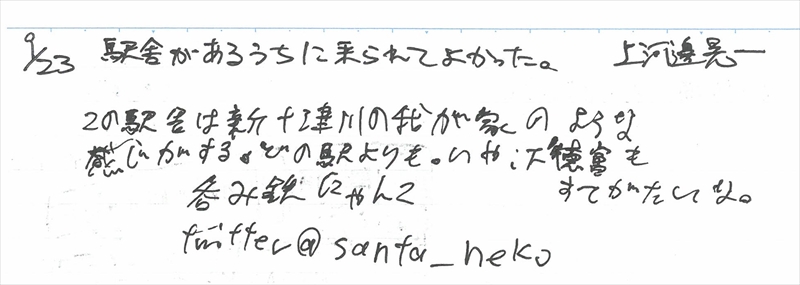 9/23 駅舎があるうちに来られてよかった。 上河邊晃一
この駅舎は新十津川の我が家のような
感じがする。どの駅よりも。いや、大穂富も
呑み鉄にゃんこ すてがたいしな。
twitter@santa_neko